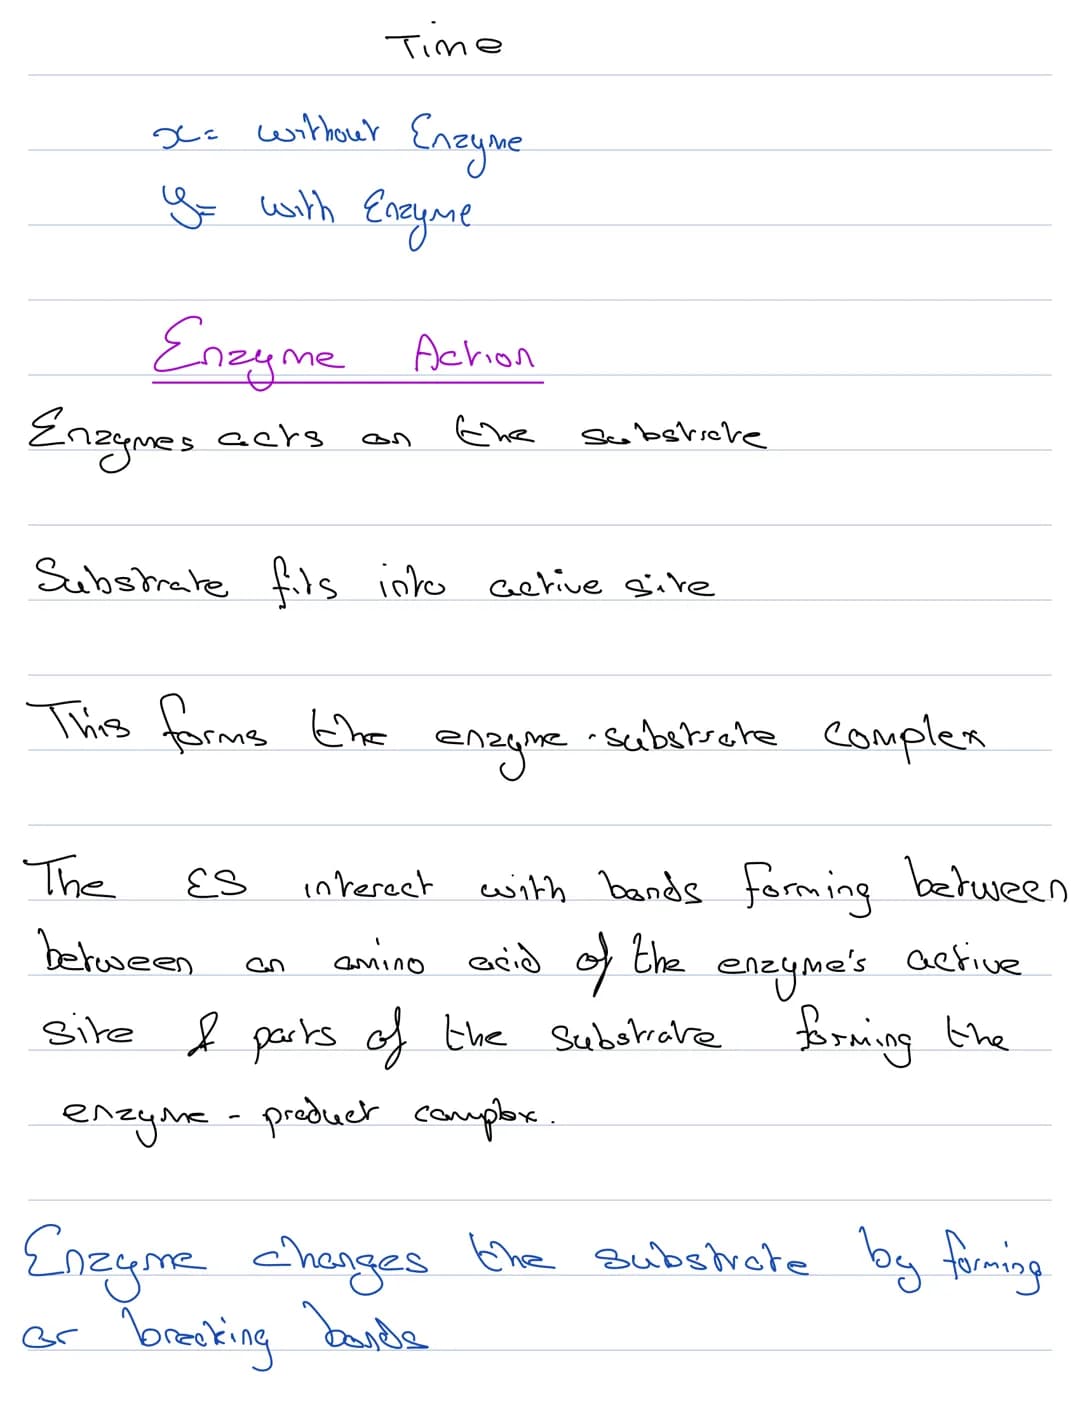 Time
x= without Enzyme
y= with Enzyme
Enzyme Action
Enzymes acts on the substrate
Substrate fits into active site
This forms the enzyme-substrate complex
The ES interact with bonds forming between
between an amino acid of the enzyme's active
site & parts of the substrate forming the
enzyme-product complex.
Enzyme changes the substrate by forming
or breaking bonds